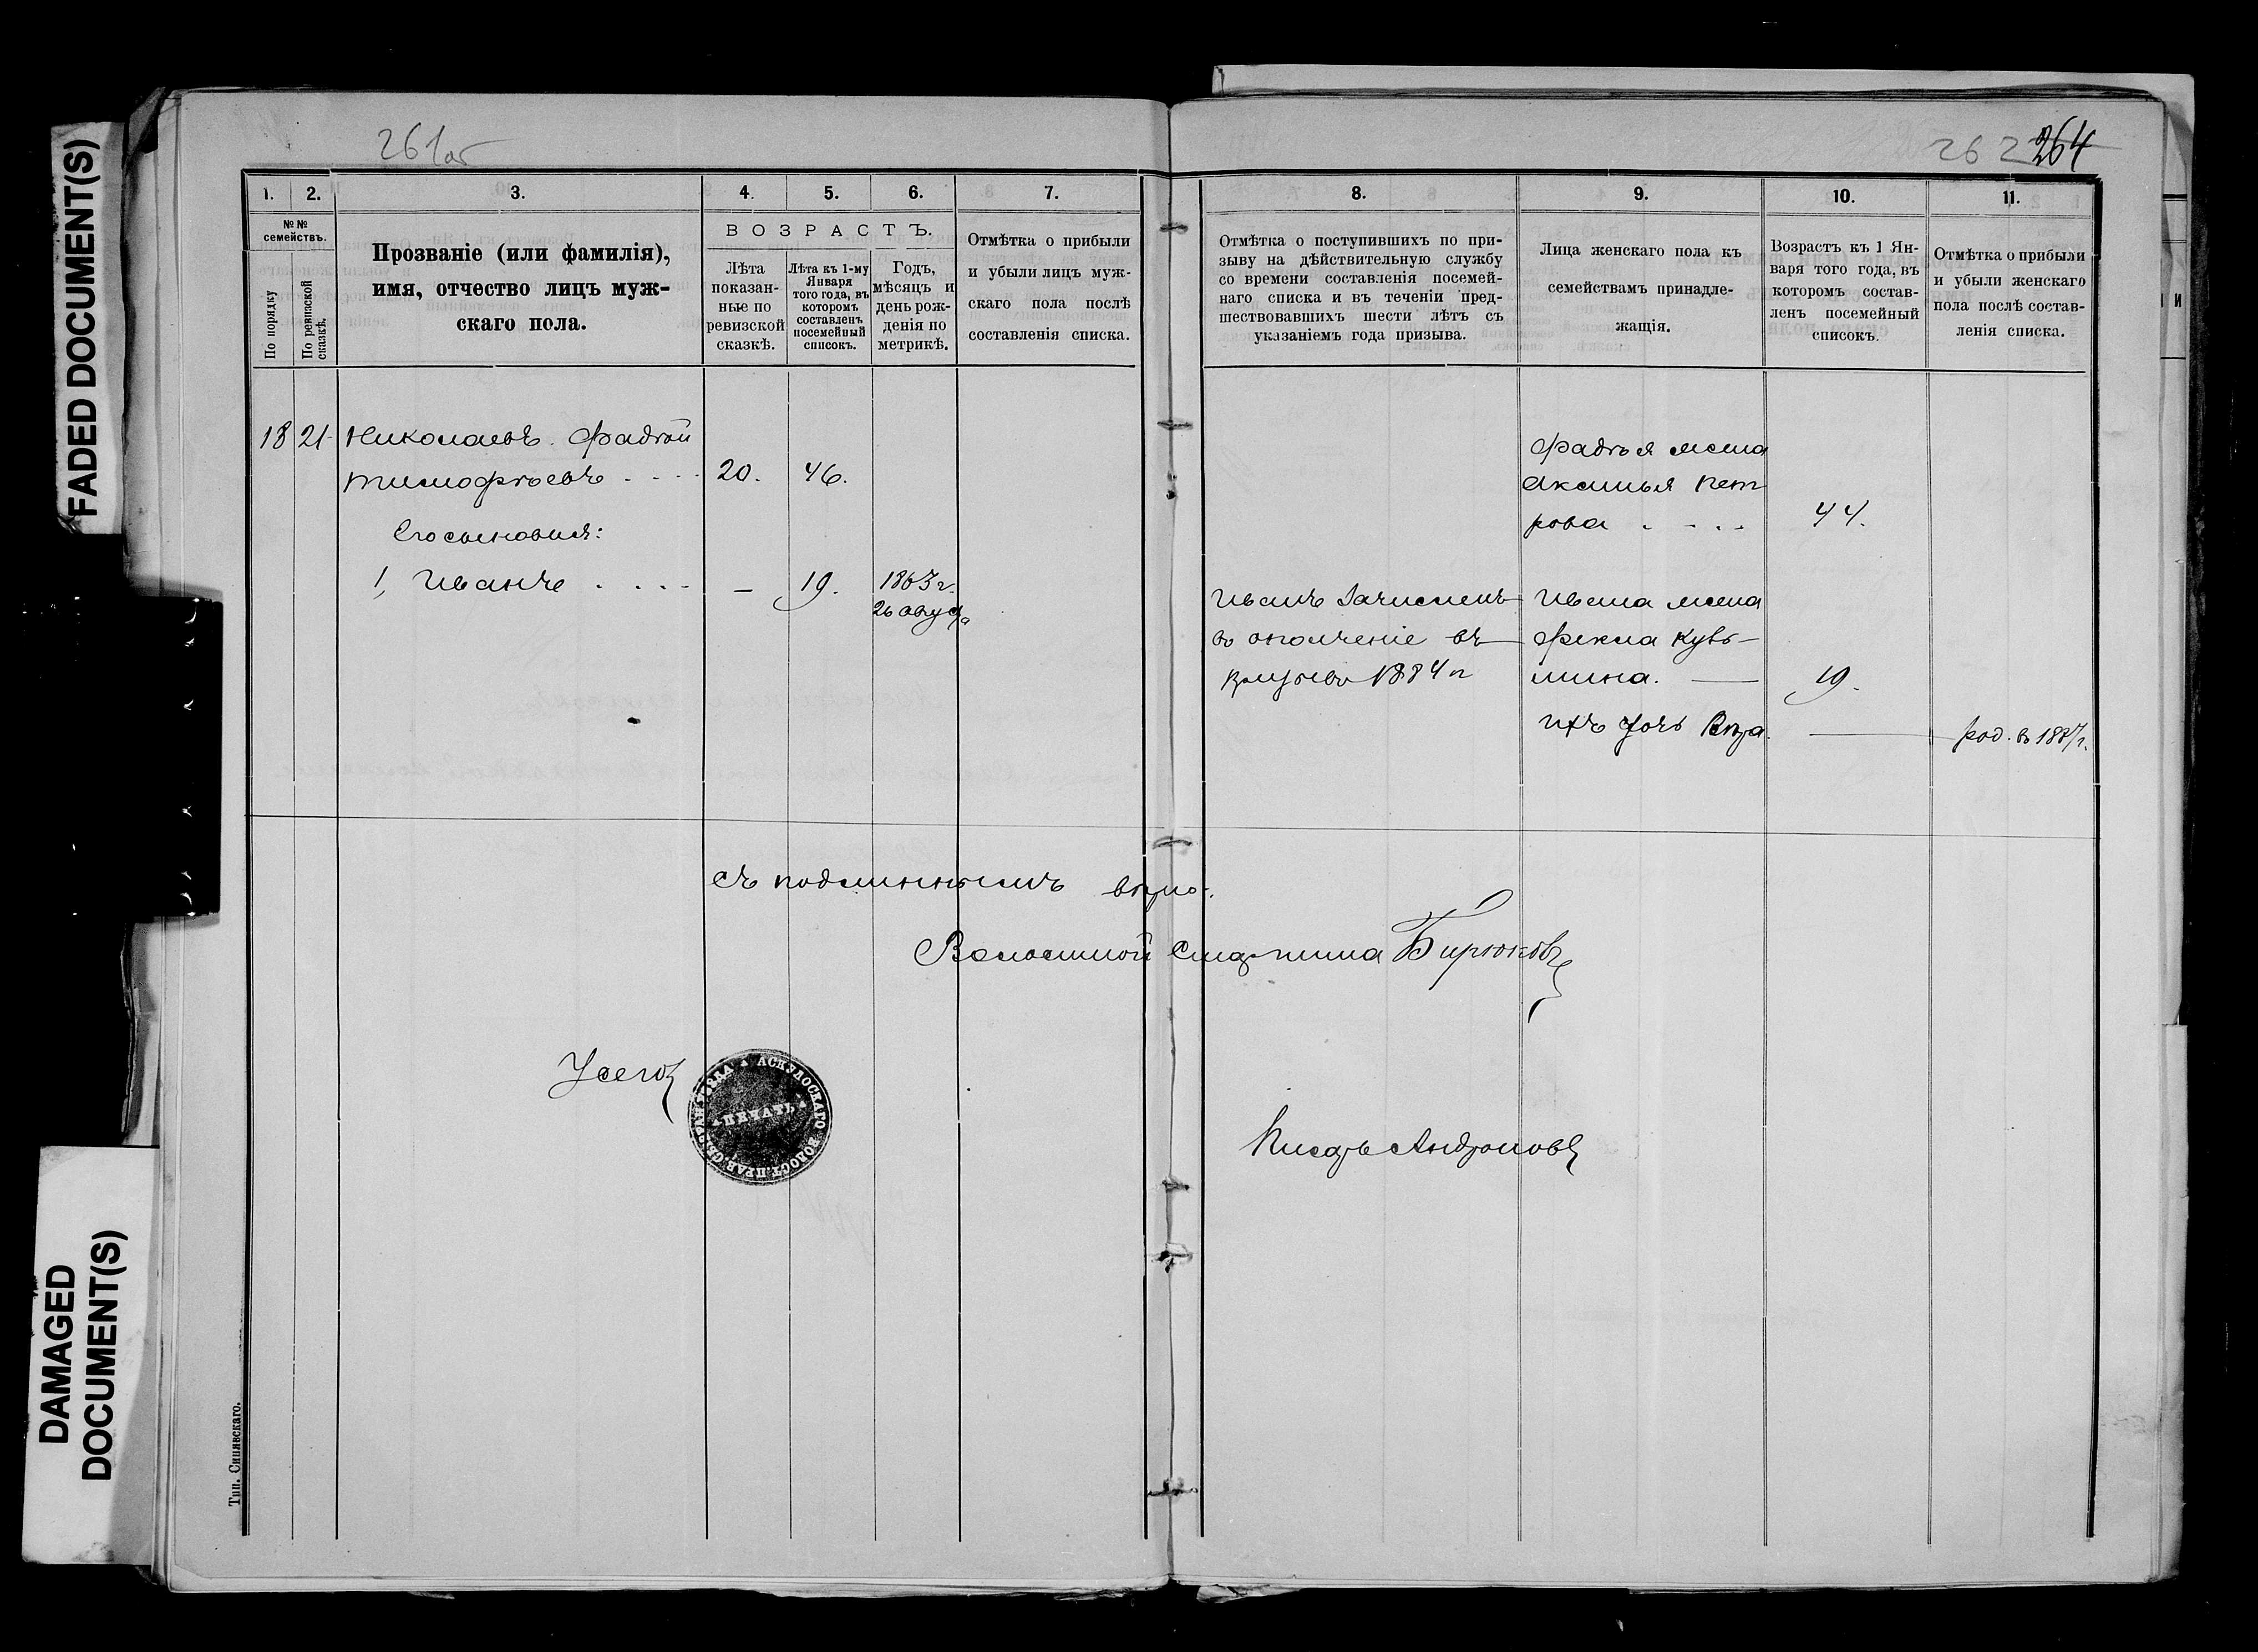 FADED DOCUMENT(S)
DAMAGED
DOCUMENT(S)
261об
262 264
1. 2. 3. 4. 5. 6. 7.
№№
семействъ.
По порядку
По ревизской
сказкѣ.
Прозваніе (или фамилія),
имя, отчество лицъ муж-
скаго пола.
ВОЗРАСТЪ.
Лѣта
показан-
ные по
ревизской
сказкѣ.
Лѣта къ 1-му
Января
того года, въ
которомъ
составленъ
посемейный
списокъ.
Годъ,
мѣсяцъ и
день рож-
денія по
метрикѣ.
Отмѣтка о прибыли
и убыли лицъ муж-
скаго пола послѣ
составленія списка.
8. 9. 10. 11.
Отмѣтка о поступившихъ по при-
зыву на дѣйствительную службу
со времени составленія посемей-
наго списка и въ теченіи пред-
шествовавшихъ шести лѣтъ съ
указаніемъ года призыва.
Лица женскаго пола къ
семействамъ принадле-
жащія.
Возрастъ къ 1 Ян-
варя того года, въ
которомъ состав-
ленъ посемейный
списокъ.
Отмѣтка о прибыли
и убыли женскаго
пола послѣ состав-
ленія списка.
18 21 Николаевъ. Фадѣй
Тимофѣевъ 20. 46.
Его сыновья:
1, Иванъ — 19. 1863 г.
26 августа
Иванъ зачисленъ
въ ополченіе въ
призывъ 1884 г
Фадѣя жена
Аксинья Пет
рова 44.
Ивана жена
Фекла Кузь-
мина. — 19.
Ихъ дочь Вѣра. — род. въ 1887 г.
Съ подлиннымъ вѣрно:
Волостной Старшина Бирюковъ
АСКУЛОСКАГО ВОЛОСТ. ПРАВ.
ПЕЧАТЬ
Писарь Андроновъ
Тип. Синявскаго.